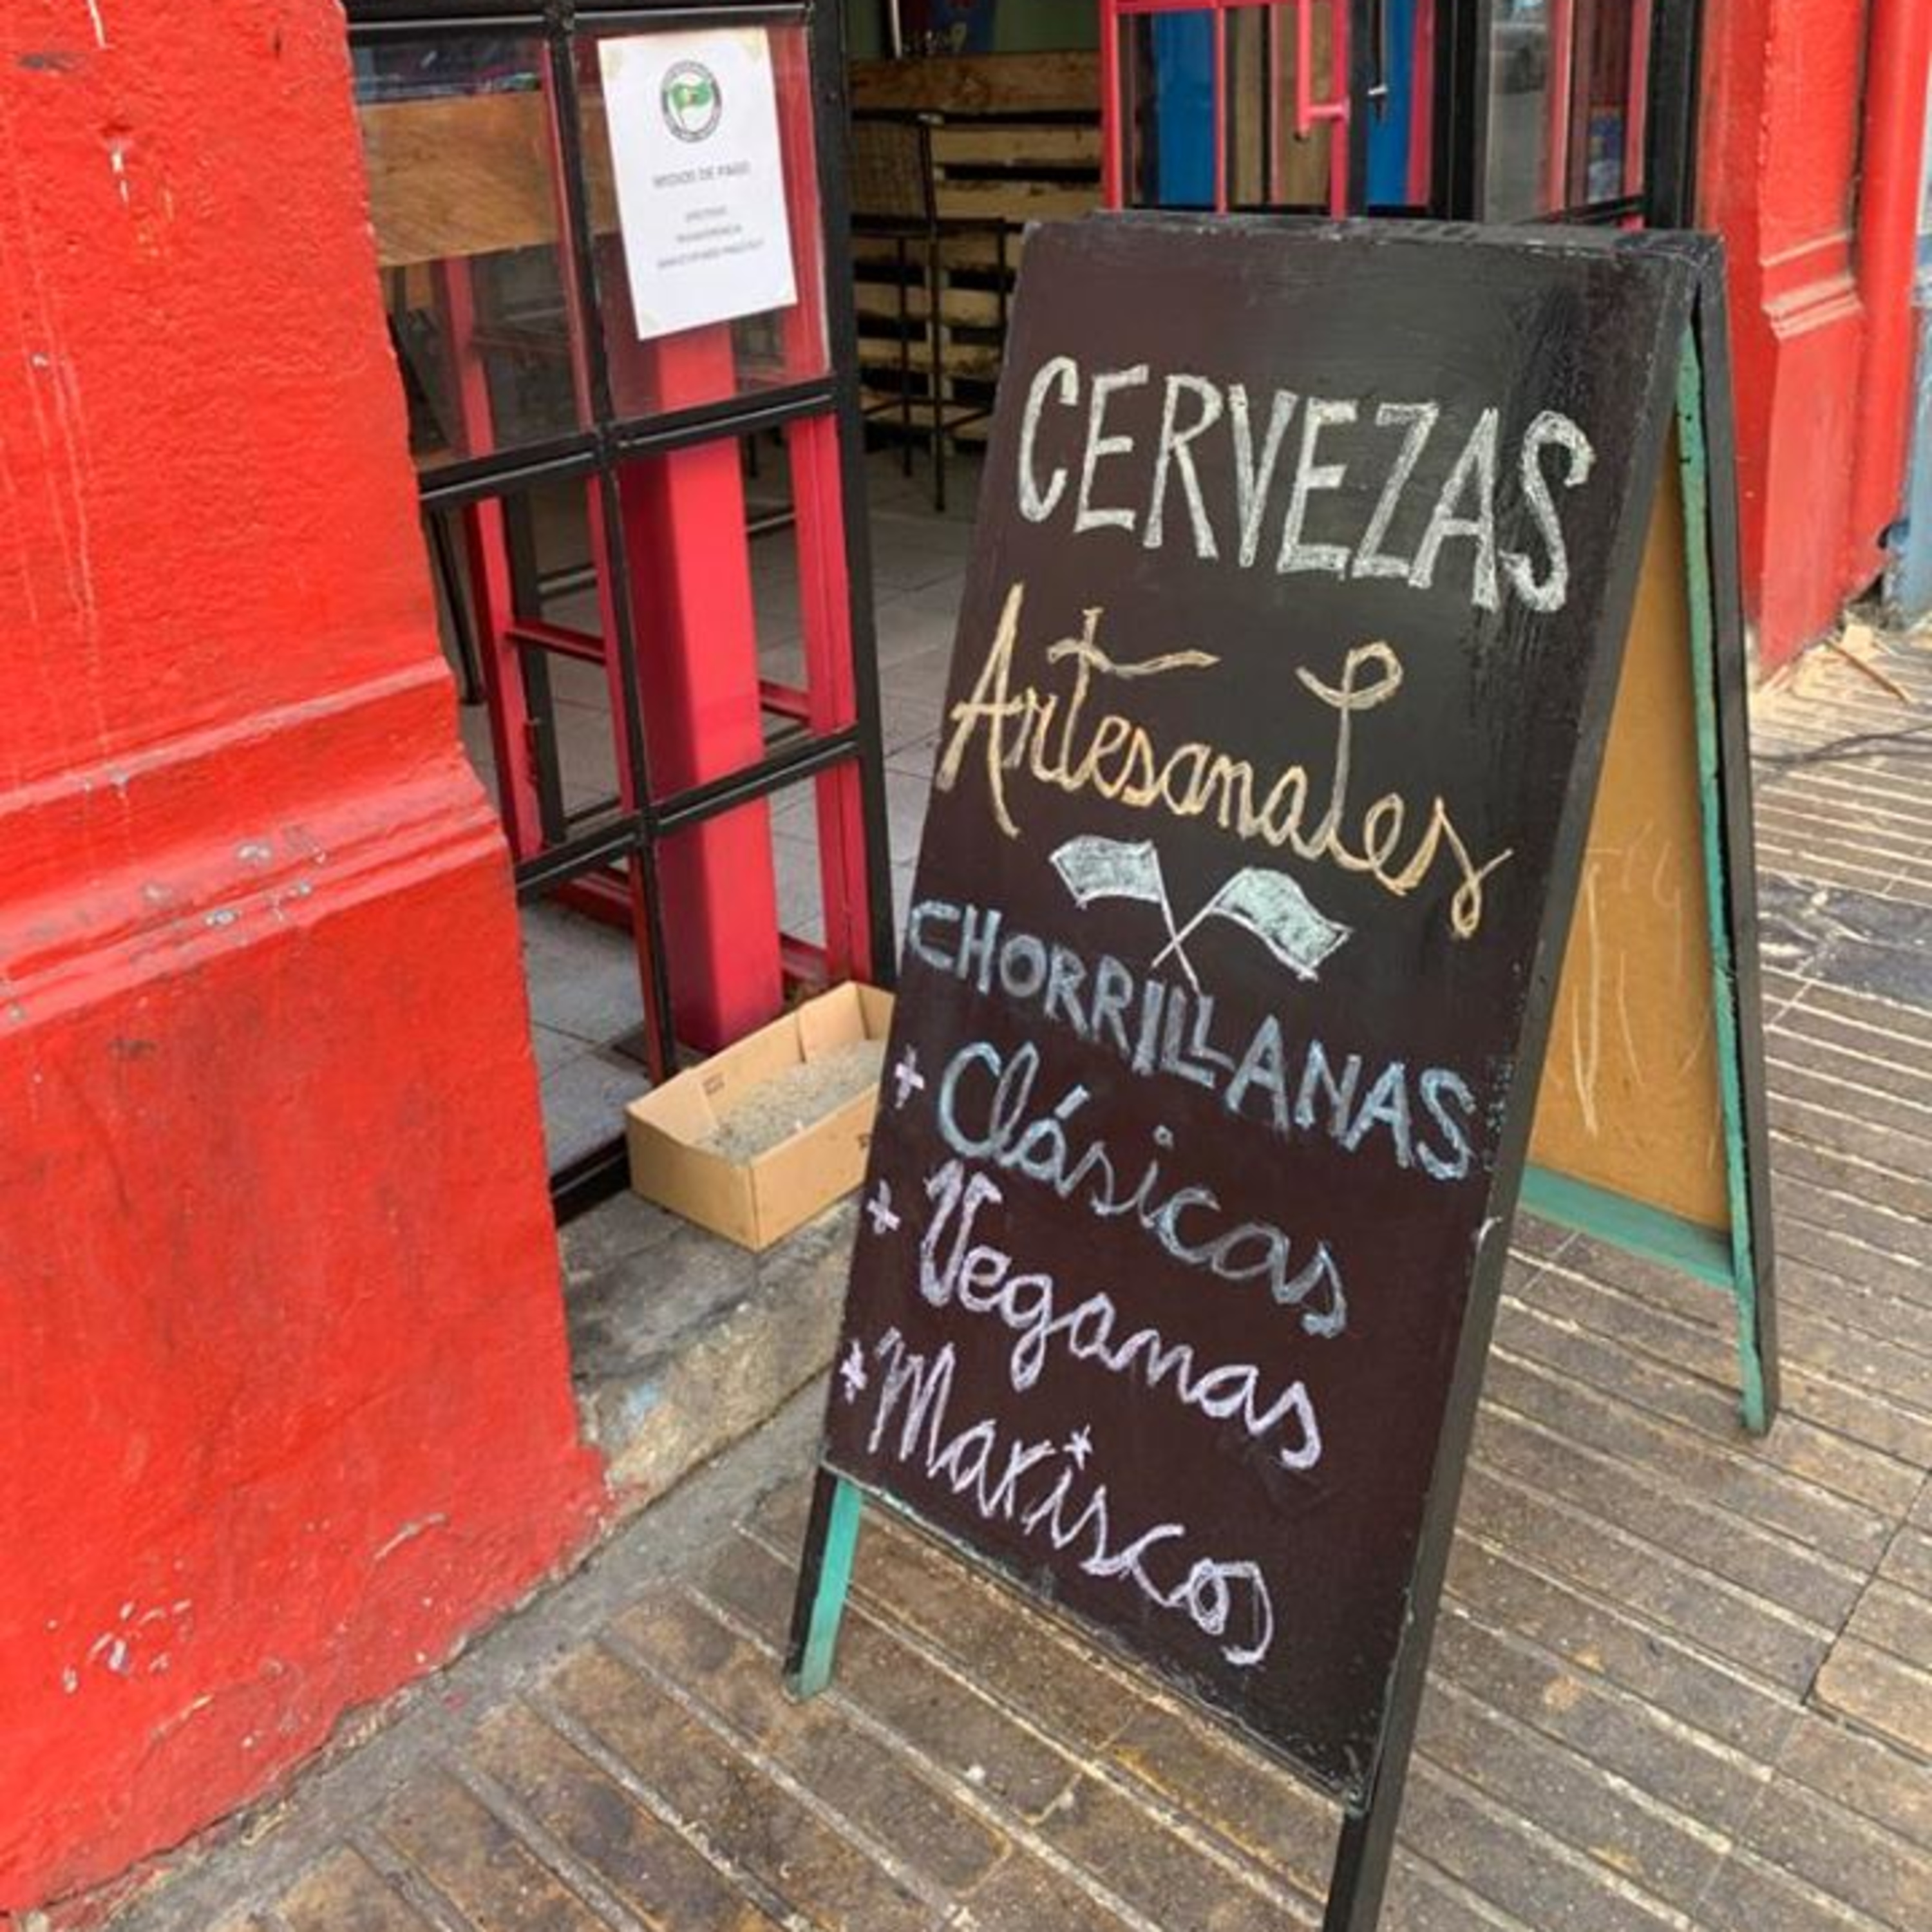 MEDIOS DE PAGO
EFECTIVO
TRANSFERENCIA
CERVEZAS
Artesanales
CHORRILLANAS
* Clásicas
* Veganas
* Mariscos